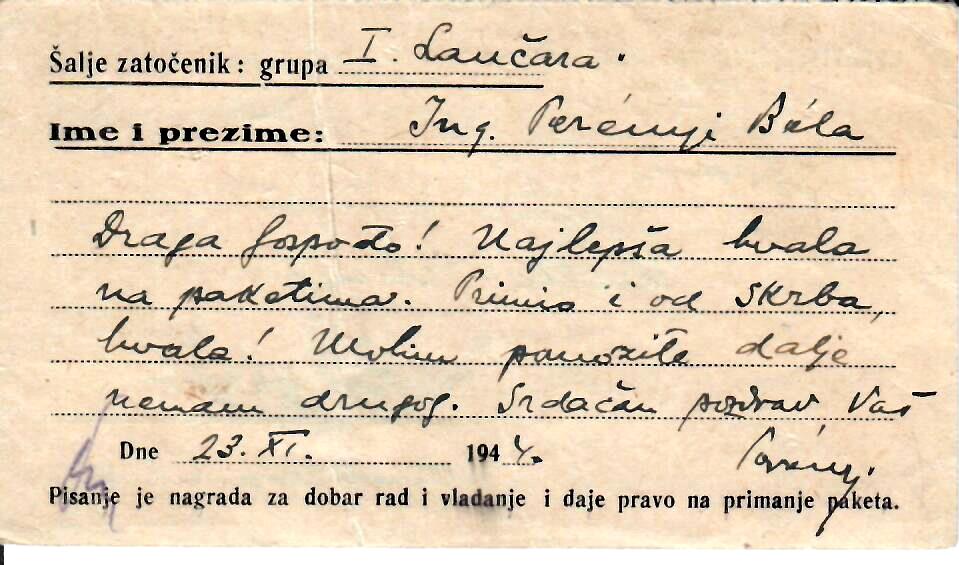 Šalje zatočenik: grupa I. Lančara.
Ime i prezime: Ing. Perényi Béla
Draga gospođo! Najlepša hvala
na paketima. Primio i od Skrba,
hvala! Molim pomozite dalje
nemam drugog. Srdačan pozdrav Vaš
Dne 23. XI. 1944. Perényi.
Pisanje je nagrada za dobar rad i vladanje i daje pravo na primanje paketa.